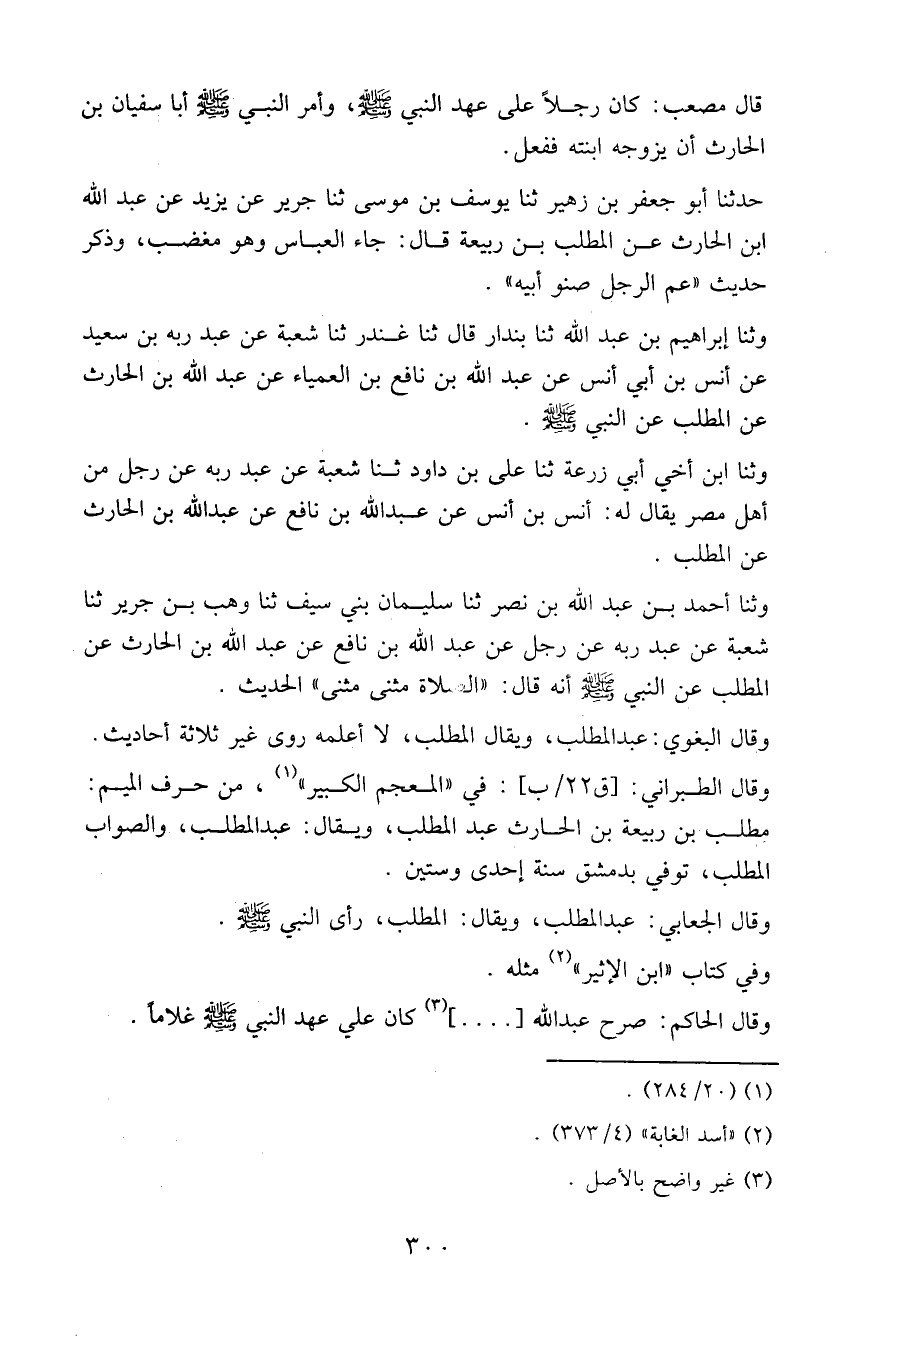 قال مصعب: كان رجلاً على عهد النبي ﷺ، وأمر النبي ﷺ أبا سفيان بن
الحارث أن يزوجه ابنته ففعل.
حدثنا أبو جعفر بن زهير ثنا يوسف بن موسى ثنا جرير عن يزيد عن عبد الله
ابن الحارث عن المطلب بن ربيعة قال: جاء العباس وهو مغضب، وذكر
حديث «عم الرجل صنو أبيه» .
وثنا إبراهيم بن عبد الله ثنا بندار قال ثنا غندر ثنا شعبة عن عبد ربه بن سعيد
عن أنس بن أبي أنس عن عبد الله بن نافع بن العمياء عن عبد الله بن الحارث
عن المطلب عن النبي ﷺ .
وثنا ابن أخي أبي زرعة ثنا على بن داود ثنا شعبة عن عبد ربه عن رجل من
أهل مصر يقال له: أنس بن أنس عن عبدالله بن نافع عن عبدالله بن الحارث
عن المطلب .
وثنا أحمد بن عبد الله بن نصر ثنا سليمان بني سيف ثنا وهب بن جرير ثنا
شعبة عن عبد ربه عن رجل عن عبد الله بن نافع عن عبد الله بن الحارث عن
المطلب عن النبي ﷺ أنه قال: «الصلاة مثنى مثنى» الحديث .
وقال البغوي: عبدالمطلب، ويقال المطلب، لا أعلمه روى غير ثلاثة أحاديث.
وقال الطبراني: [ق٢٢/ب] : في «المعجم الكبير»(١) ، من حرف الميم:
مطلب بن ربيعة بن الحارث عبد المطلب، ويقال: عبدالمطلب، والصواب
المطلب، توفي بدمشق سنة إحدى وستين .
وقال الجعابي: عبدالمطلب، ويقال: المطلب، رأى النبي ﷺ .
وفي كتاب «ابن الإثير»(٢) مثله .
وقال الحاكم: صرح عبدالله [....](٣) كان علي عهد النبي ﷺ غلاماً .
(١) (٢٠/٢٨٤) .
(٢) «أسد الغابة» (٤/٣٧٣) .
(٣) غير واضح بالأصل .
٣٠٠